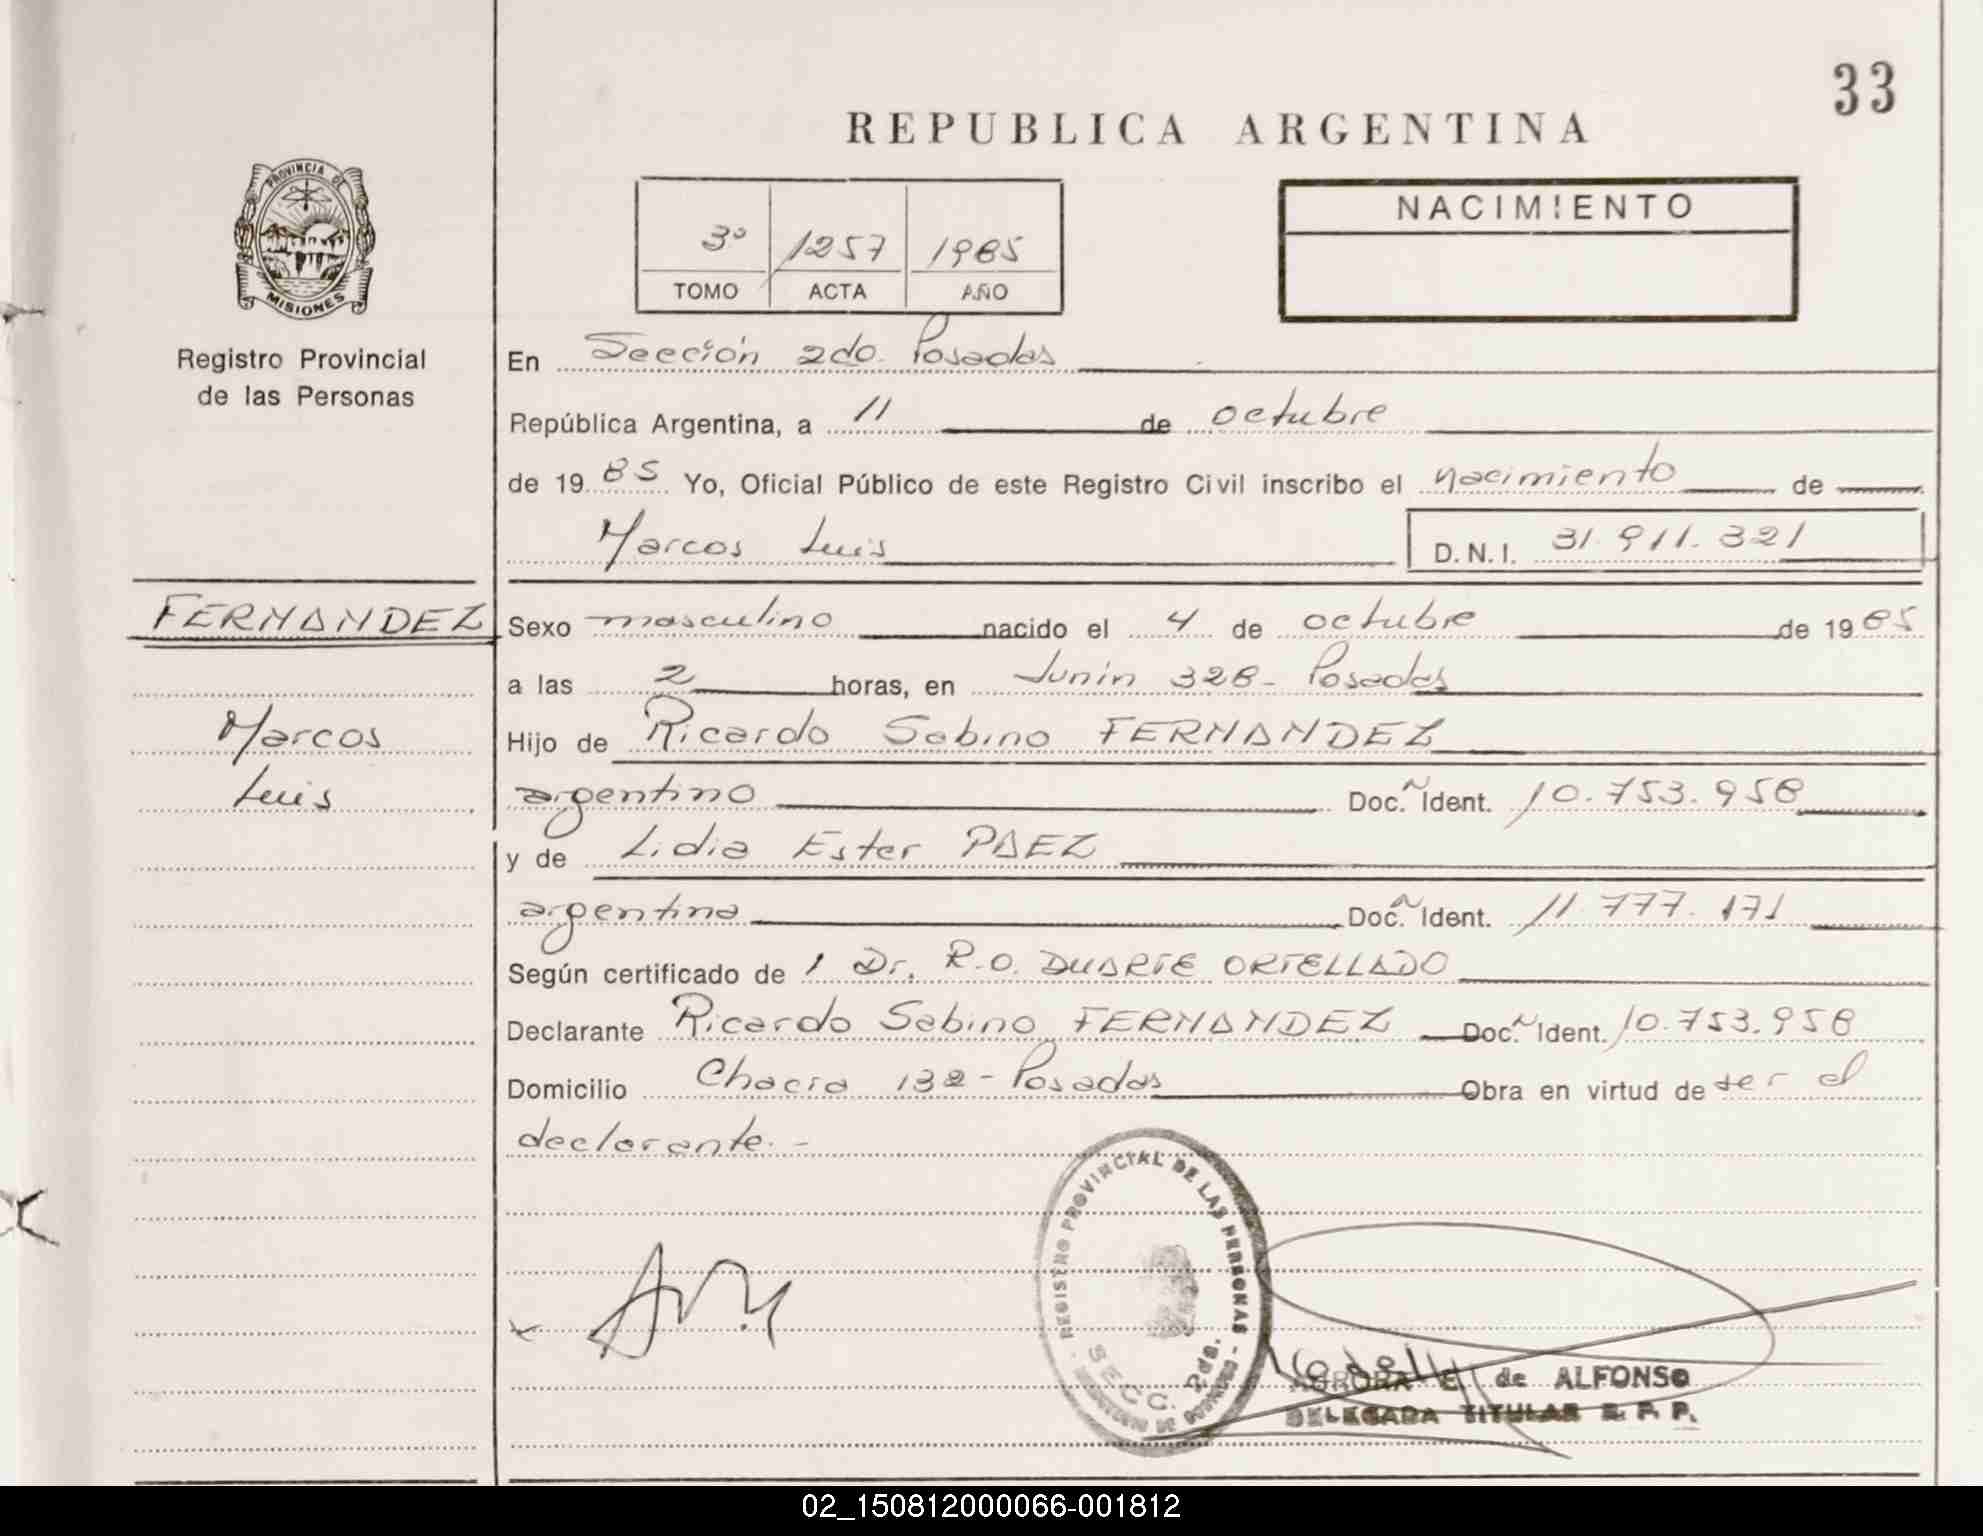 33
REPUBLICA ARGENTINA
PROVINCIA DE
MISIONES
Registro Provincial
de las Personas
3º 1257 1985
TOMO ACTA AÑO
NACIMIENTO
En Sección 2do. Posadas
República Argentina, a 11 de octubre
de 1985 Yo, Oficial Público de este Registro Civil inscribo el nacimiento de
Marcos Luis D.N.I. 31.911.321
FERNANDEZ
Marcos
Luis
Sexo masculino nacido el 4 de octubre de 1985
a las 2 horas, en Junín 328 - Posadas
Hijo de Ricardo Sabino FERNANDEZ
argentino Doc. Ident. 10.753.958
y de Lidia Ester PAEZ
argentina Doc. Ident. 11.777.171
Según certificado de 1 Dr. R.O. DUARTE ORTELLADO
Declarante Ricardo Sabino FERNANDEZ Doc. Ident. 10.753.958
Domicilio Chacra 132 - Posadas Obra en virtud de ser el
declarante.-
REGISTRO PROVINCIAL DE LAS PERSONAS
SECC. 2da.
AURORA E. de ALFONSO
DELEGADA TITULAR R. P. P.
02_150812000066-001812